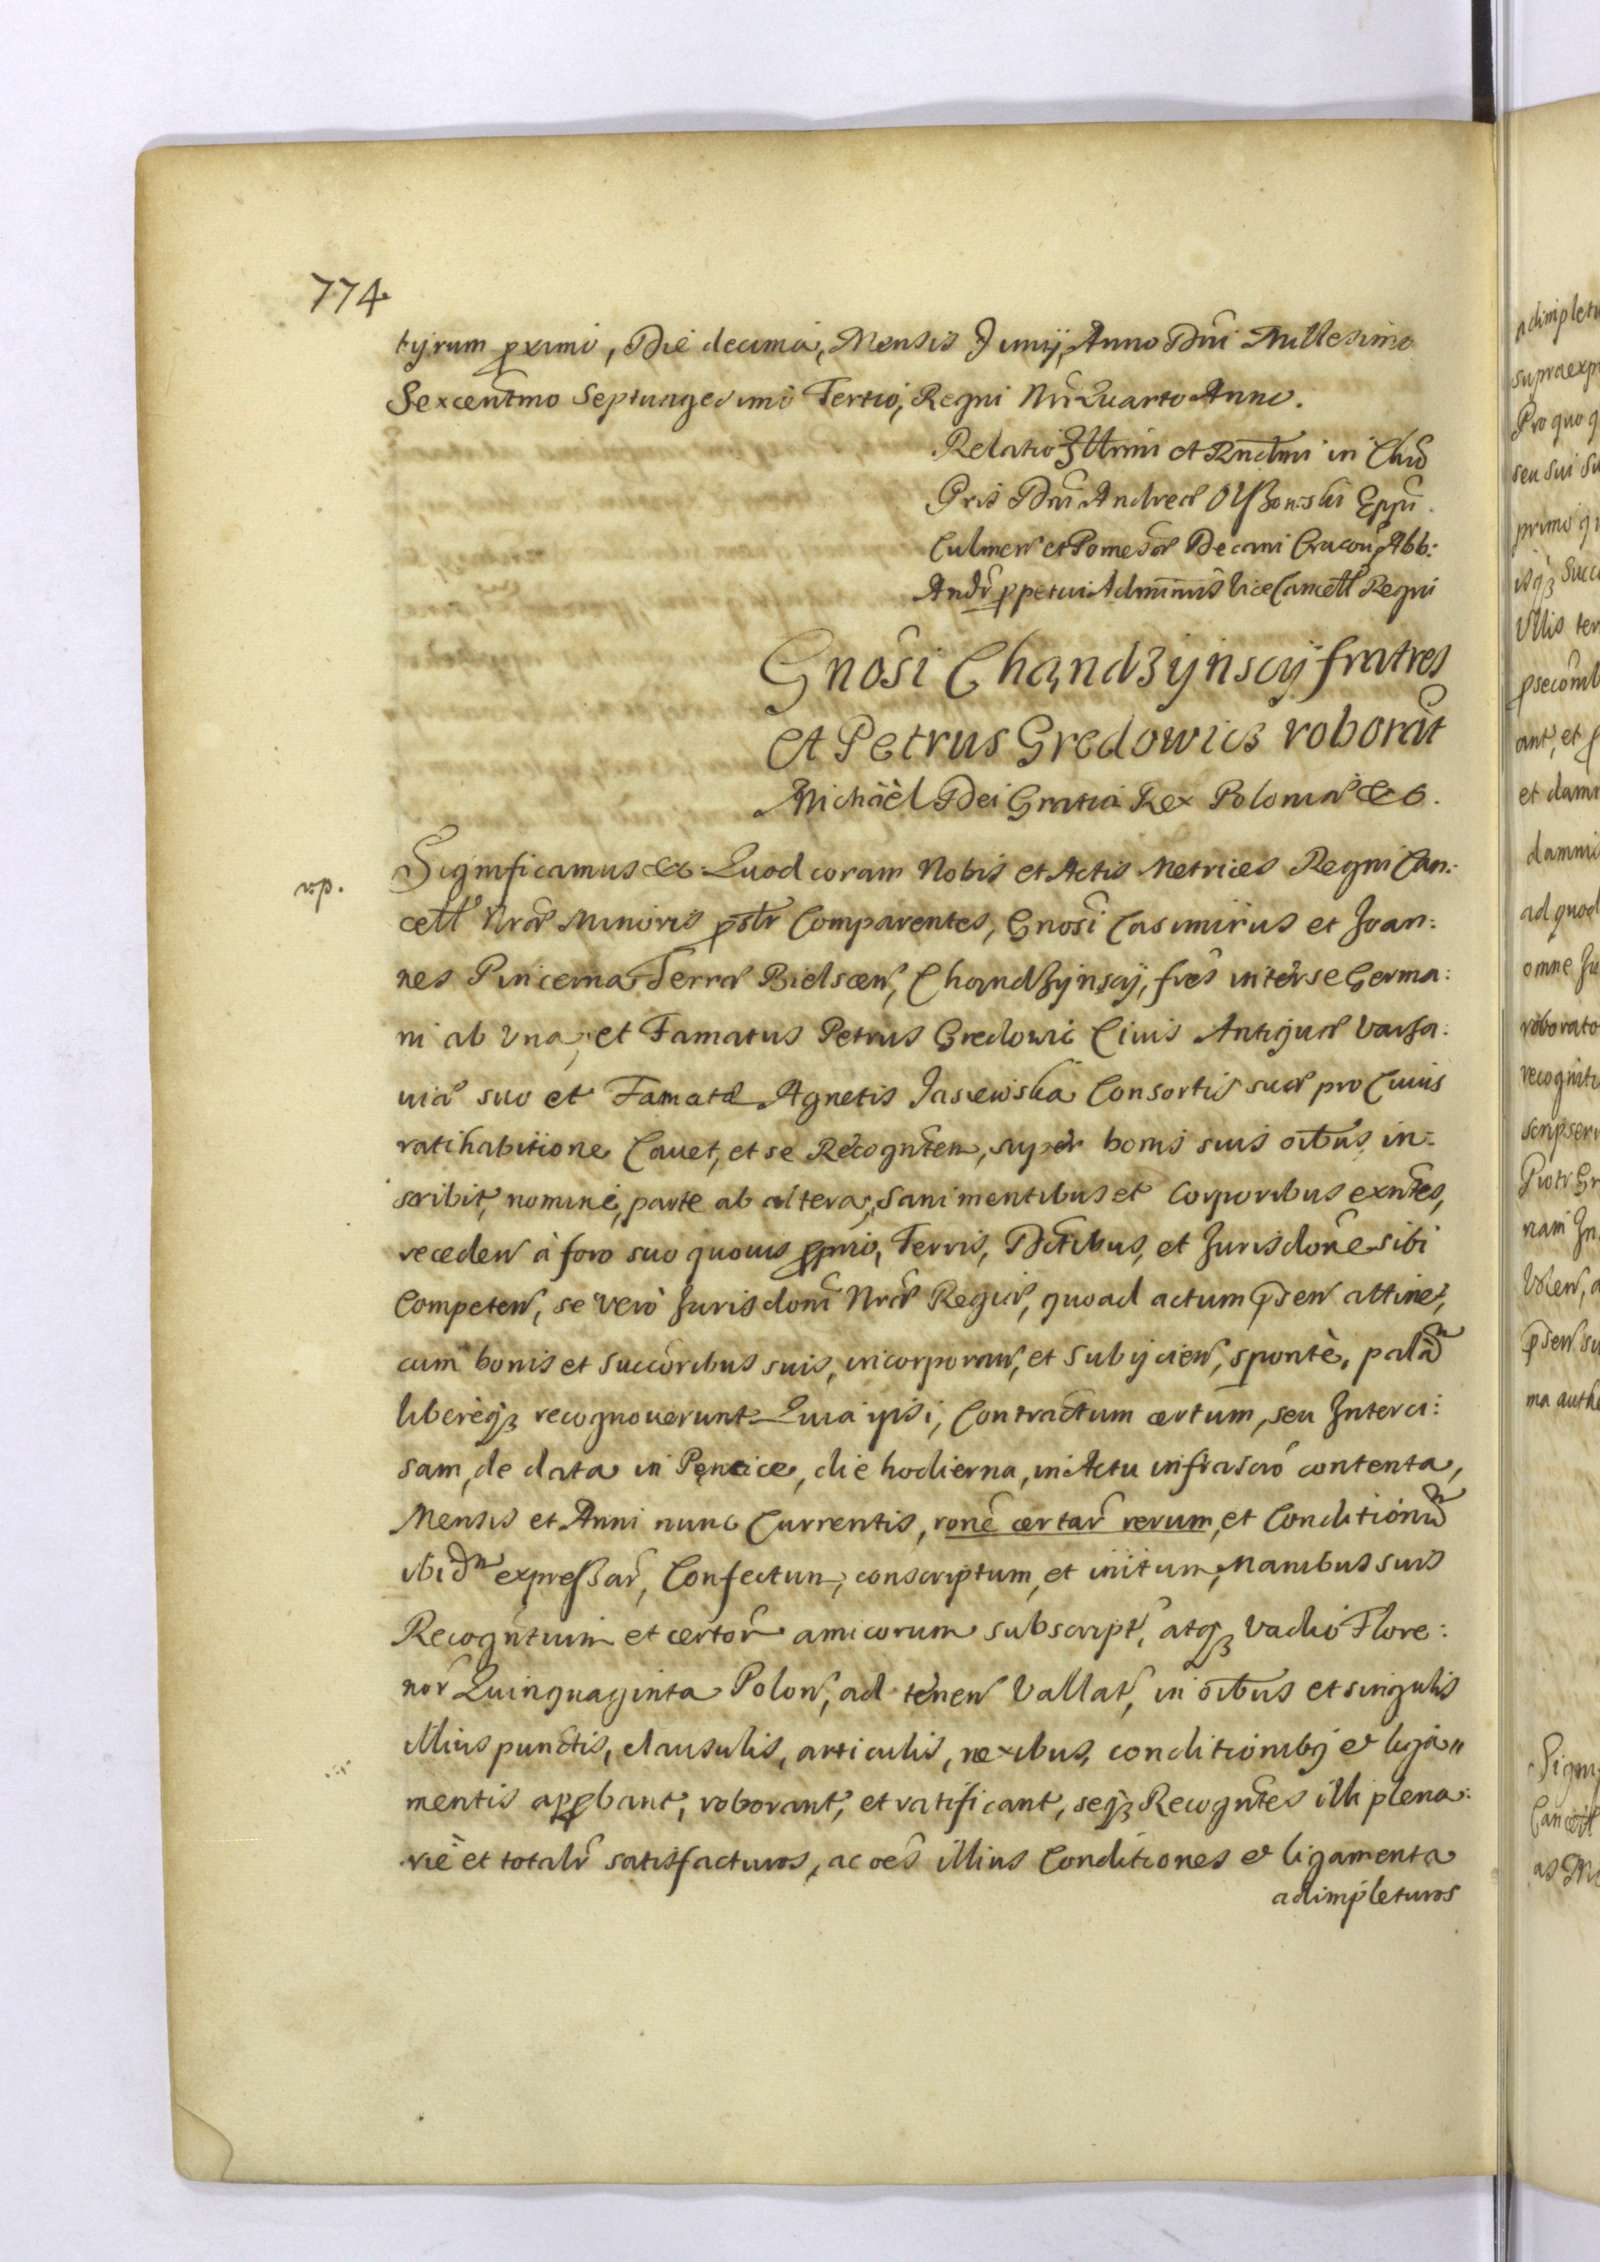 774
tyrum pximi, Die decima, Mensis Junij, Anno Dni Millesimo
Sexcentmo Septuagesimo Tertio, Regni Nri Quarto Anno.
Relatio Illrmi et Rndmi in Chro
Pris Dni Andreae Olszonski Eppi
Culmen et Pomesa Decani Cracou, Abb:
Andr ppetui Adminris Vice Cancell Regni
Gnosi Chandzijnscij fratres
et Petrus Gredowicz roborãt
Michaël Dei Gratia Rex Poloniae &c.
vp.
Significamus &c. Quod coram Nobis et Actis Metrices Regni Can:
cell Nrae Minoris pstr Comparentes, Gnosi Casimirus et Joan:
nes Pincerna Terrae Bielscen, Chandzijnscij, fres inter se Germa:
ni ab Vna, et Famatus Petrus Gredowic Civis Antiquae Varsa:
uiae suo et Famatae Agnetis Jasiewska Consortis suae pro Cuius
ratihabitione Cauet, et se Recogntem, super bonis suis oibus in:
scribit, nomine, parte ab altera, Sani mentibus et Corporibus exntes,
receden à foro suo quouis pprio, Terris, Dctibus, et Jurisdone sibi
Competen, se verò Jurisdoni Nrae Regiae, quoad actum psen attinet,
cum bonis et Succoribus suis, incorporan, et Subijcien, spontè, palam
liberèqз recognouerunt Quia ipsi, Contractum certum, seu Interci:
sam, de data in Pencice, die hodierna, in Actu infrascro contenta,
Mensis et Anni nunc Currentis, rone certar rerum, et Conditionum
ibidm expressar, Confectum, conscriptum, et initum, Manibus suis
Recogntium et certor amicorum subscript, atqз Vadio Flore:
nor Quinquaginta Polon, ad tenen Vallat, in oibus et singulis
illius punctis, clausulis, articulis, nexibus, conditionibq et liga"
mentis appbant, roborant, et ratificant, seqз Recogntes illi plena:
riè et totalr satisfacturos, ac oes illius Conditiones et ligamenta
adimpleturos